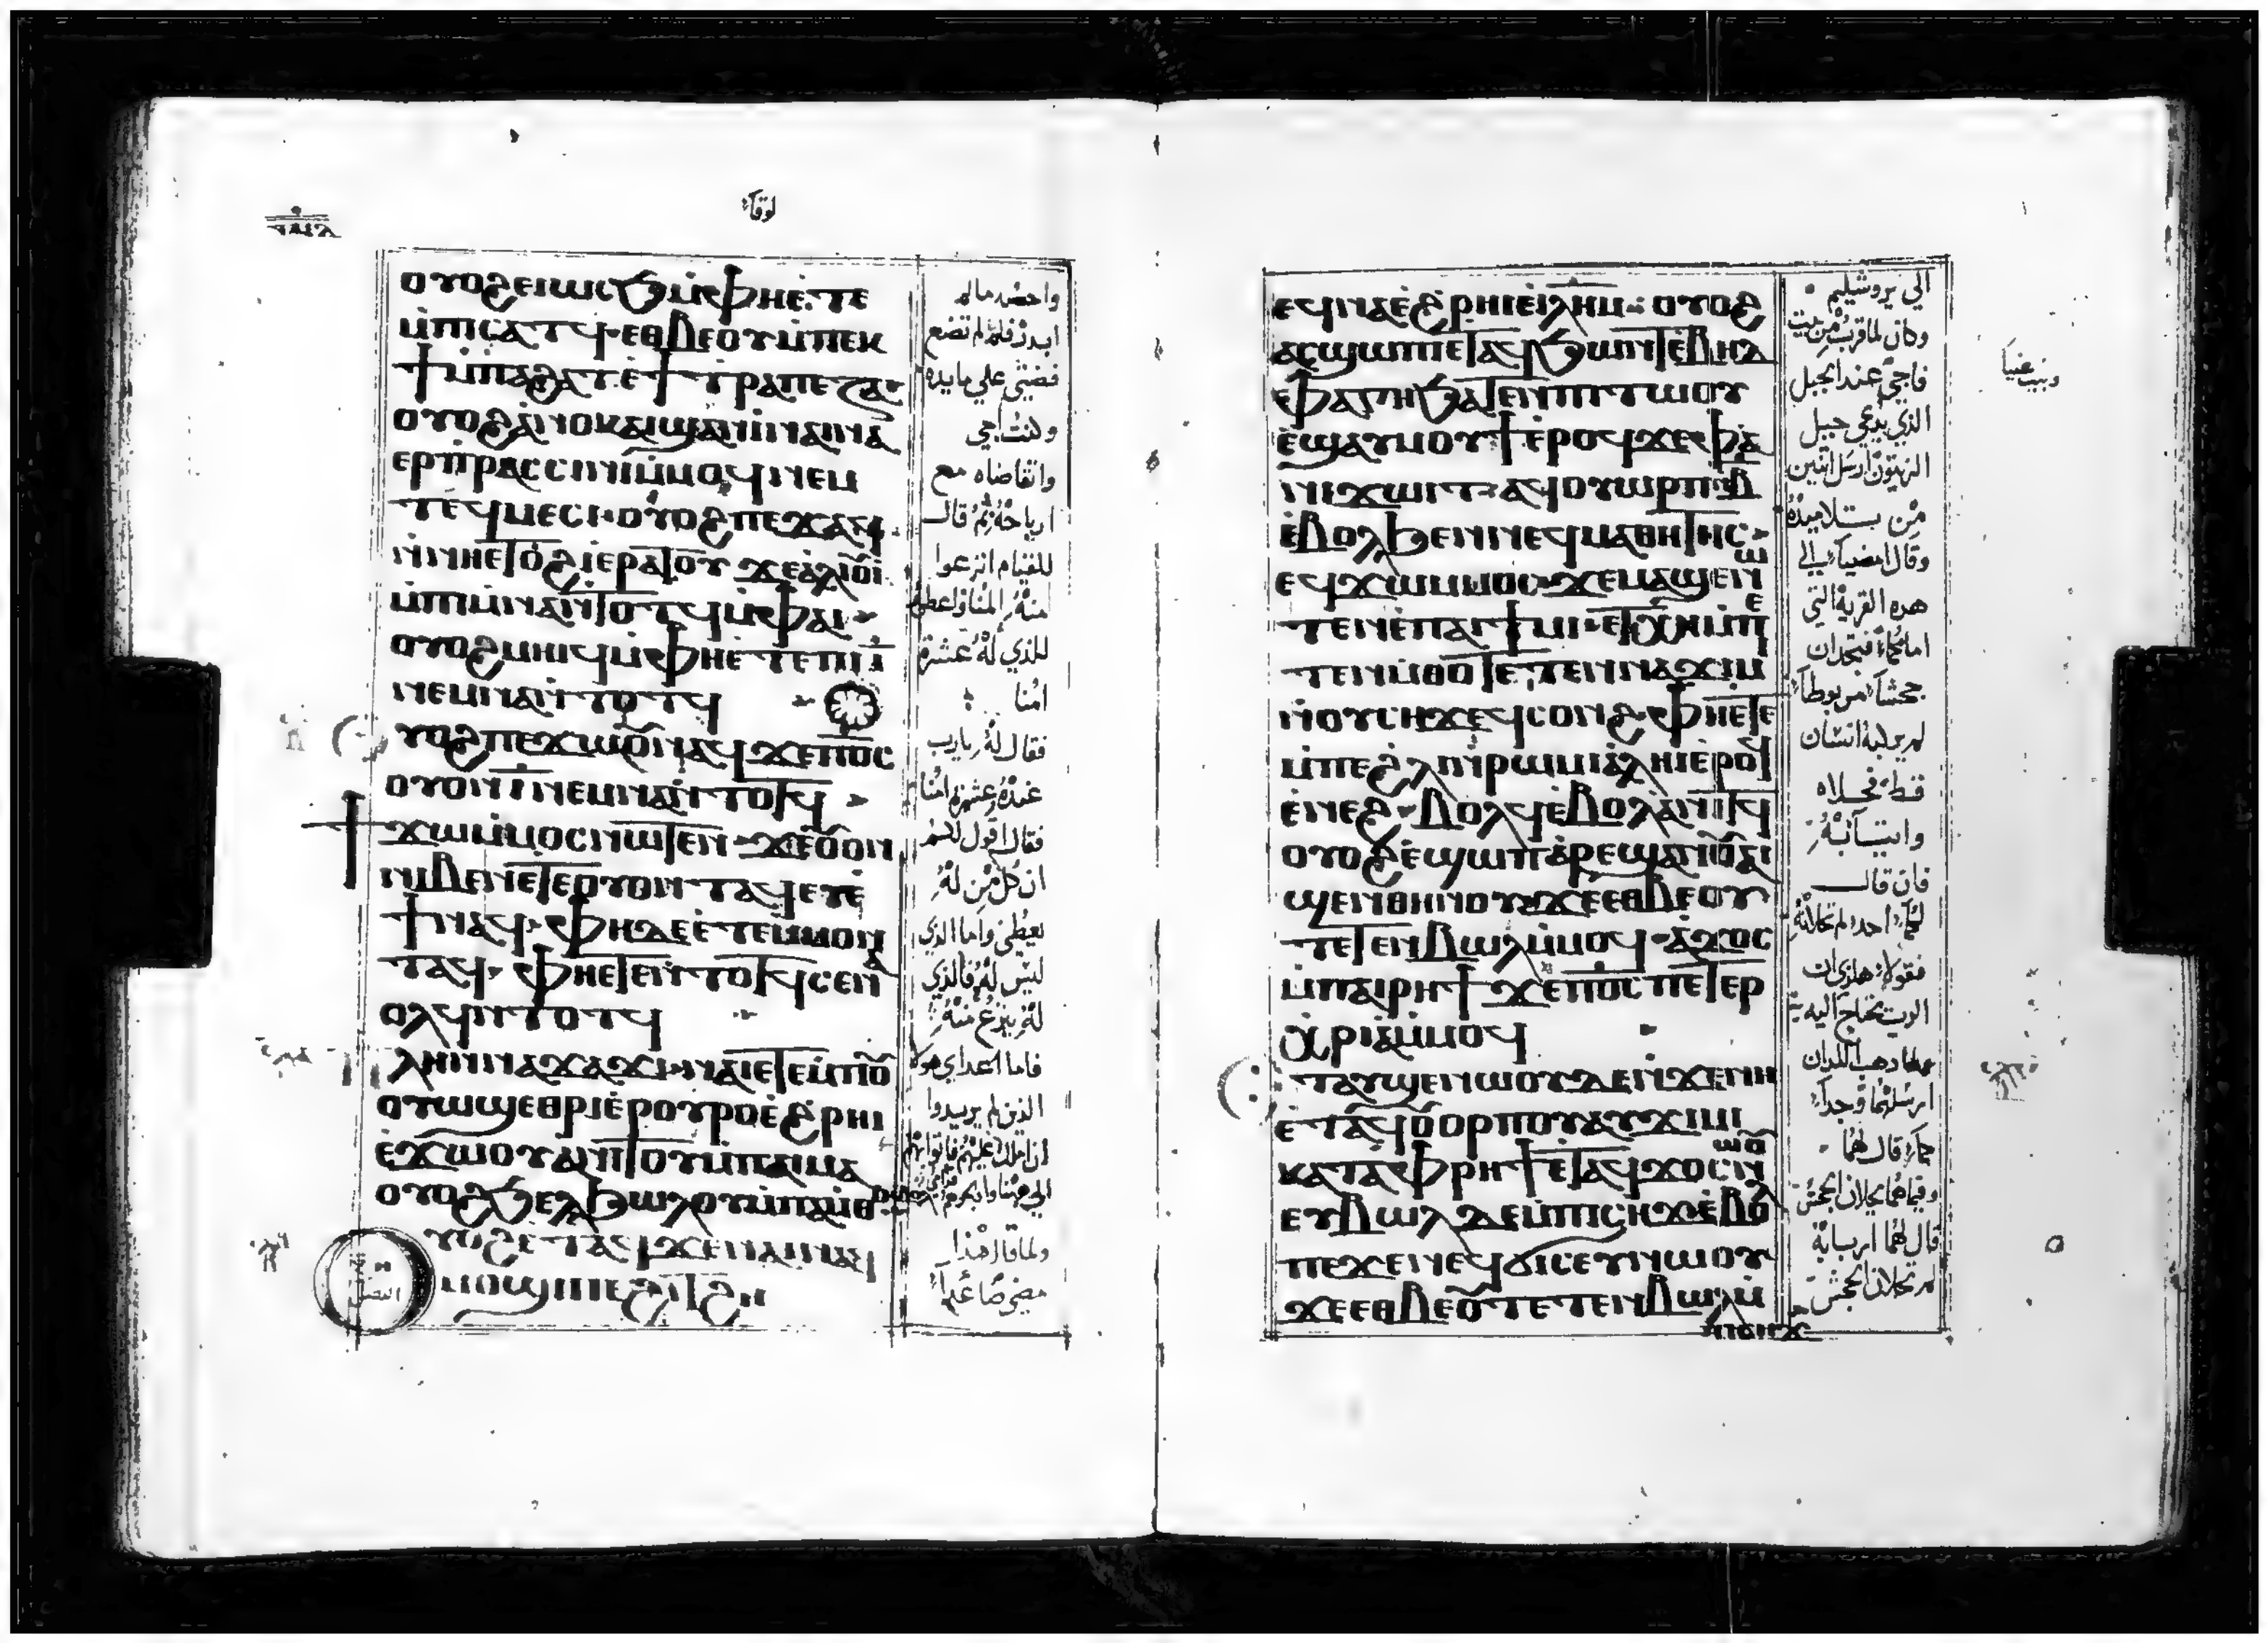 لوقا
ⲟⲩⲟϩ ⲉⲓⲱⲥϧ ⲙ̇ⲫⲏⲉ̇ⲧⲉ
ⲙ̇ⲡⲓⲥⲁⲧϥ ⲉⲑⲃⲉⲟⲩ ⲙ̇ⲡⲉⲕ
ϯ ⲙ̇ⲡⲁϩⲁⲧ ⲉ̇ϯⲧⲣⲁⲡⲉⲍⲁ
ⲟⲩⲟϩ ⲁ̇ⲛⲟⲕ ⲁⲓϣⲁⲛⲓ̇ ⲛⲁⲓⲛⲁ
ⲉⲣⲡⲣⲁⲥⲥⲓⲛ ⲙ̇ⲙⲟϥ ⲛⲉⲙ
ⲧⲉϥⲙⲉⲥⲓ ⲟⲩⲟϩ ⲡⲉϫⲁϥ
ⲛ̇ⲛⲏⲉⲧⲟ̇ϩⲓ ⲉⲣⲁⲧⲟⲩ ϫⲉ ⲁ̇ⲗⲓⲟⲩⲓ̇
ⲙ̇ⲡⲓⲙ̇ⲛⲁ ⲛ̇ⲧⲟⲧϥ ⲙ̇ⲫⲁⲓ
ⲟⲩⲟϩ ⲙⲏⲓϥ ⲙ̇ⲫⲏⲉ̇ⲧⲉ ⲡⲓⲓ̅
ⲛ̇ⲉⲙⲛⲁ ⲛ̇ⲧⲟⲧϥ
ⲩⲟϩ ⲡⲉϫⲱⲟⲩ ⲛⲁϥ ϫⲉ ⲡⲟ̅ⲥ̅
ⲟⲩⲟⲛ ⲓ̅ ⲛ̇ⲉⲙⲛⲁ ⲛ̇ⲧⲟⲧϥ
ϯϫⲱ ⲙ̇ⲙⲟⲥ ⲛⲱⲧⲉⲛ ϫⲉ ⲟⲩⲟⲛ
ⲛⲓⲃⲉⲛ ⲉ̇ⲧⲉ ⲟⲩⲟⲛⲧⲁϥ ⲉⲩⲉ̇
ϯ ⲛⲁϥ ⲫⲏ ⲇⲉ ⲉ̇ⲧⲉ ⲙ̇ⲙⲟⲛ
ⲧⲁϥ ⲫⲏⲉⲧⲉⲛⲧⲟⲧϥ ⲥⲉⲛⲁ
ⲟⲗϥ ⲛ̇ⲧⲟⲧϥ
ⲡⲗⲏⲛ ⲛⲁϫⲁϫⲓ ⲛⲁⲓ ⲉⲧⲉⲙ̇ⲡⲟⲩ
ⲟⲩⲱϣ ⲉⲑⲣⲓⲉⲣⲟⲩⲣⲟ ⲉ̇ϩⲣⲏⲓ
ⲉ̇ϫⲱⲟⲩ ⲁⲛⲓⲧⲟⲩ ⲙ̇ⲡⲁⲓⲙⲁ
ⲟⲩⲟϩ ϧⲉⲗϧⲱⲗⲟⲩ ⲙ̇ⲡⲁⲙ̇ⲑⲟ
ⲩⲟϩ ⲉ̇ⲧⲁϥϫⲉⲛⲁⲓ ⲛⲁϥ
ⲙⲟϣⲓ ⲡⲉ ϩⲓⲧϩⲏ
واحصد مالم
ابذر فلم لم تضع
فضتي علي مايده
وكنت اجي
واتقاضاه مع
ارباحه ثم قال
للقيام انزعوا
منه المنا واعطوه
للذي له عشرة
امنا
فقال له يارب
عنده عشرة امنا
فقال اقول لكم
ان كل من له
يعطي واما الذي
ليس له فالذي
له ينزع منه
فاما اعداي هولا
الذين لم يريدوا
ان املك عليهم فاتوا بهم
ولما قال هذا
ⲉϥⲛⲁ ⲉ̇ϩⲣⲏⲓ ⲉ̇ⲓ̅ⲗ̅ⲏ̅ⲙ̅ ⲟⲩⲟϩ
ⲁⲥϣⲱⲡⲓ ⲉⲧⲁϥϧⲱⲛⲧ ⲉ̇ⲃⲏⲑ
ⲫⲁⲅⲏ ϧⲁⲧⲉⲛ ⲡⲓⲧⲱⲟⲩ
ⲉ̇ϣⲁⲩⲙⲟⲩϯ ⲉ̇ⲣⲟϥ ϫⲉ ⲫⲁ
ⲛⲓϫⲱⲓⲧ ⲁϥⲟⲩⲱⲣⲡ ⲛ̇ⲃ̅
ⲉ̇ⲃⲟⲗϧⲉⲛ ⲛⲉϥⲙⲁⲑⲏⲧⲏⲥ
ⲉϥϫⲱ ⲙ̇ⲙⲟⲥ ϫⲉ ⲙⲁϣⲉⲛⲱ
ⲧⲉⲛ ⲉ̇ⲡⲁⲓϯⲙⲓ ⲉⲧⲭⲏ ⲙ̇ⲡⲉ
ⲧⲉⲛⲙ̇ⲑⲟ ⲧⲉⲧⲉⲛⲛⲁϫⲓⲙⲓ
ⲛ̇ⲟⲩⲥⲏϫ ⲉϥⲥⲟⲛϩ ⲫⲏⲉ̇ⲧⲉ
ⲙ̇ⲡⲉ ϩⲗⲓ ⲛ̇ⲣⲱⲙⲓ ⲁ̇ⲗⲏⲓ ⲉ̇ⲣⲟϥ
ⲉ̇ⲛⲉϩ ⲃⲟⲗϥ ⲉ̇ⲃⲟⲗ ⲁ̇ⲛⲓⲧϥ
ⲟⲩⲟϩ ⲉ̇ϣⲱⲡ ⲁ̇ⲣⲉϣⲁⲛ ⲟⲩⲁⲓ
ϣⲉⲛ ⲑⲏⲛⲟⲩ ϫⲉ ⲉⲑⲃⲉⲟⲩ
ⲧⲉⲧⲉⲛⲃⲱⲗ ⲙ̇ⲙⲟϥ ⲁ̇ϫⲟⲥ
ⲙ̇ⲡⲁⲓⲣⲏϯ ϫⲉ ⲡⲟ̅ⲥ̅ ⲡⲉⲧⲉⲣ
ⲭⲣⲓⲁ ⲙ̇ⲙⲟϥ
ⲧⲁⲩϣⲉⲛⲱⲟⲩ ⲇⲉ ⲛ̇ϫⲉ ⲛⲏ
ⲉ̇ⲧⲁϥⲟⲩⲟⲣⲡⲟⲩ ⲁⲩϫⲓⲙⲓ
ⲕⲁⲧⲁ ⲫⲣⲏϯ ⲉ̇ⲧⲁϥϫⲟⲥ ⲛⲱⲟⲩ
ⲉⲩⲃⲱⲗ ⲇⲉ ⲙ̇ⲡⲓⲥⲏϫ ⲉ̇ⲃⲟⲗ
ⲡⲉϫⲉ ⲛⲉϥϭⲓⲥⲉⲩ ⲛⲱⲟⲩ
ϫⲉ ⲉⲑⲃⲉⲟⲩ ⲧⲉⲧⲉⲛⲃⲱⲗ ⲙ̇
ⲡⲓⲥⲏϫ
الي يروشليم
وكان لما قرب من بيت
فاجي عند الجبل
الذي يدعي جبل
الزيتون ارسل اثنين
من تلاميذه
وقال امضيا الي
هذه القرية التي
امامكما فتجدان
جحشا مربوطا
لم يركبه انسان
قط فحلاه
واتياني به
فان قال
لكما احد لم تحلانه
فقولا هكذي ان
الرب يحتاج اليه
فلما ذهب اللذان
ارسلهما وجدا
كما قال لهما
وفيما هما يحلان الجحش
قال لهما اربابه
لم تحلان الجحش